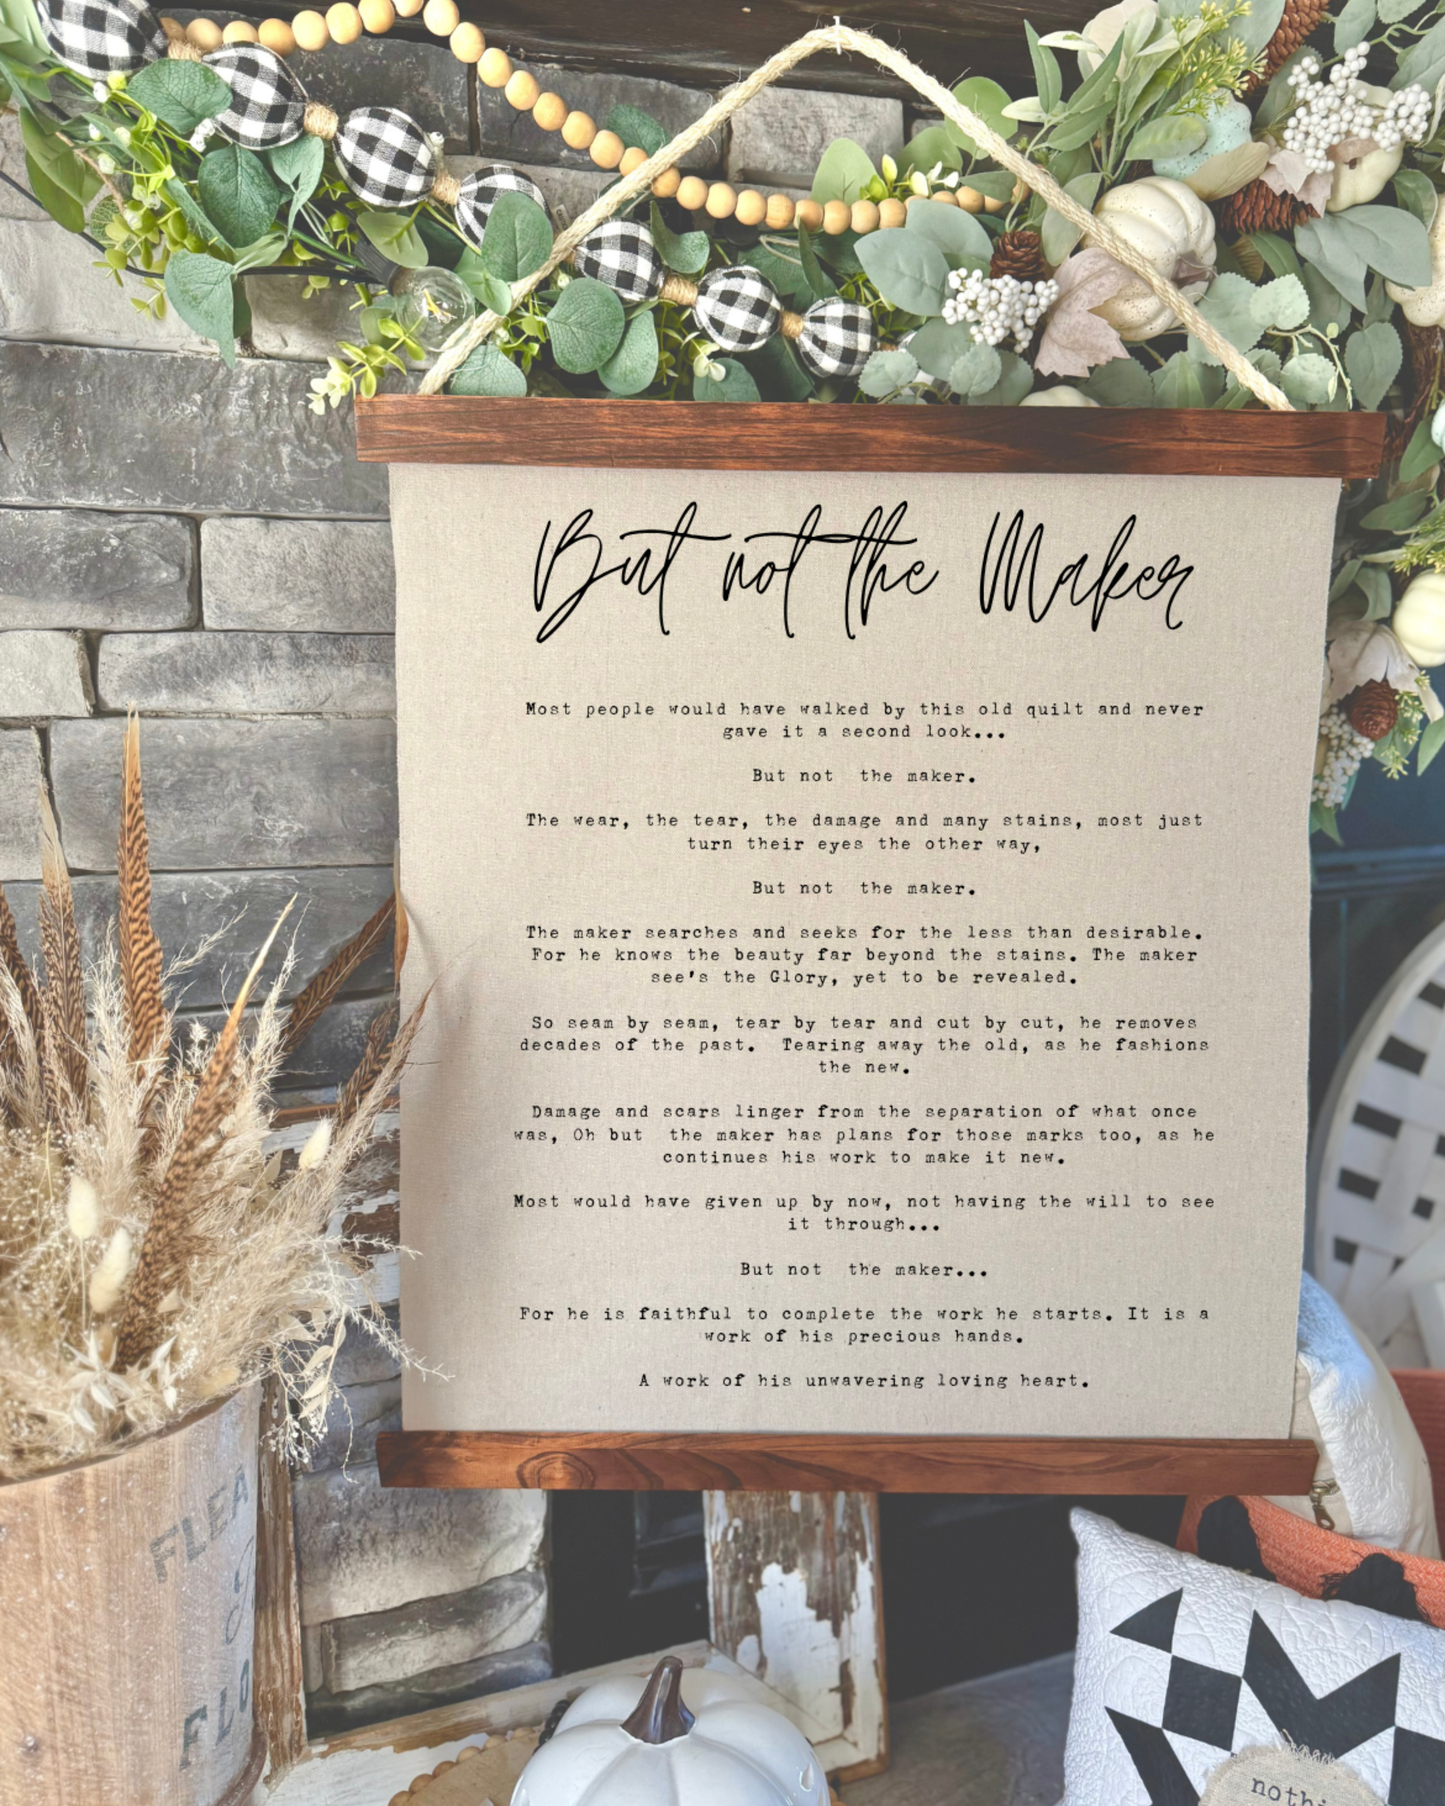 But not the Maker
Most people would have walked by this old quilt and never
gave it a second look...
But not  the maker.
The wear, the tear, the damage and many stains, most just
turn their eyes the other way,
But not  the maker.
The maker searches and seeks for the less than desirable.
For he knows the beauty far beyond the stains. The maker
see's the Glory, yet to be revealed.
So seam by seam, tear by tear and cut by cut, he removes
decades of the past.  Tearing away the old, as he fashions
the new.
Damage and scars linger from the separation of what once
was, Oh but  the maker has plans for those marks too, as he
continues his work to make it new.
Most would have given up by now, not having the will to see
it through...
But not  the maker...
For he is faithful to complete the work he starts. It is a
work of his precious hands.
A work of his unwavering loving heart.
FLEA
FLO